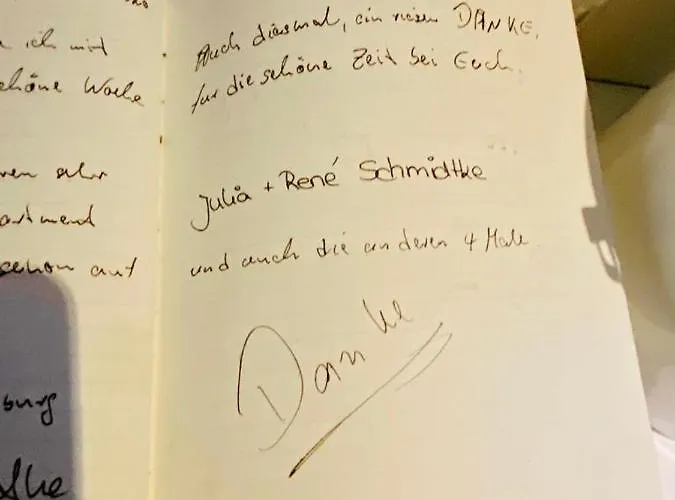 e ich mit
chöne Woche
ren sehr
artment
schon auf
burg
Auch diesmal, ein riesen DANKE,
für die schöne Zeit bei Euch.
Julia + René Schmidtke
und auch die anderen 4 Male
Danke